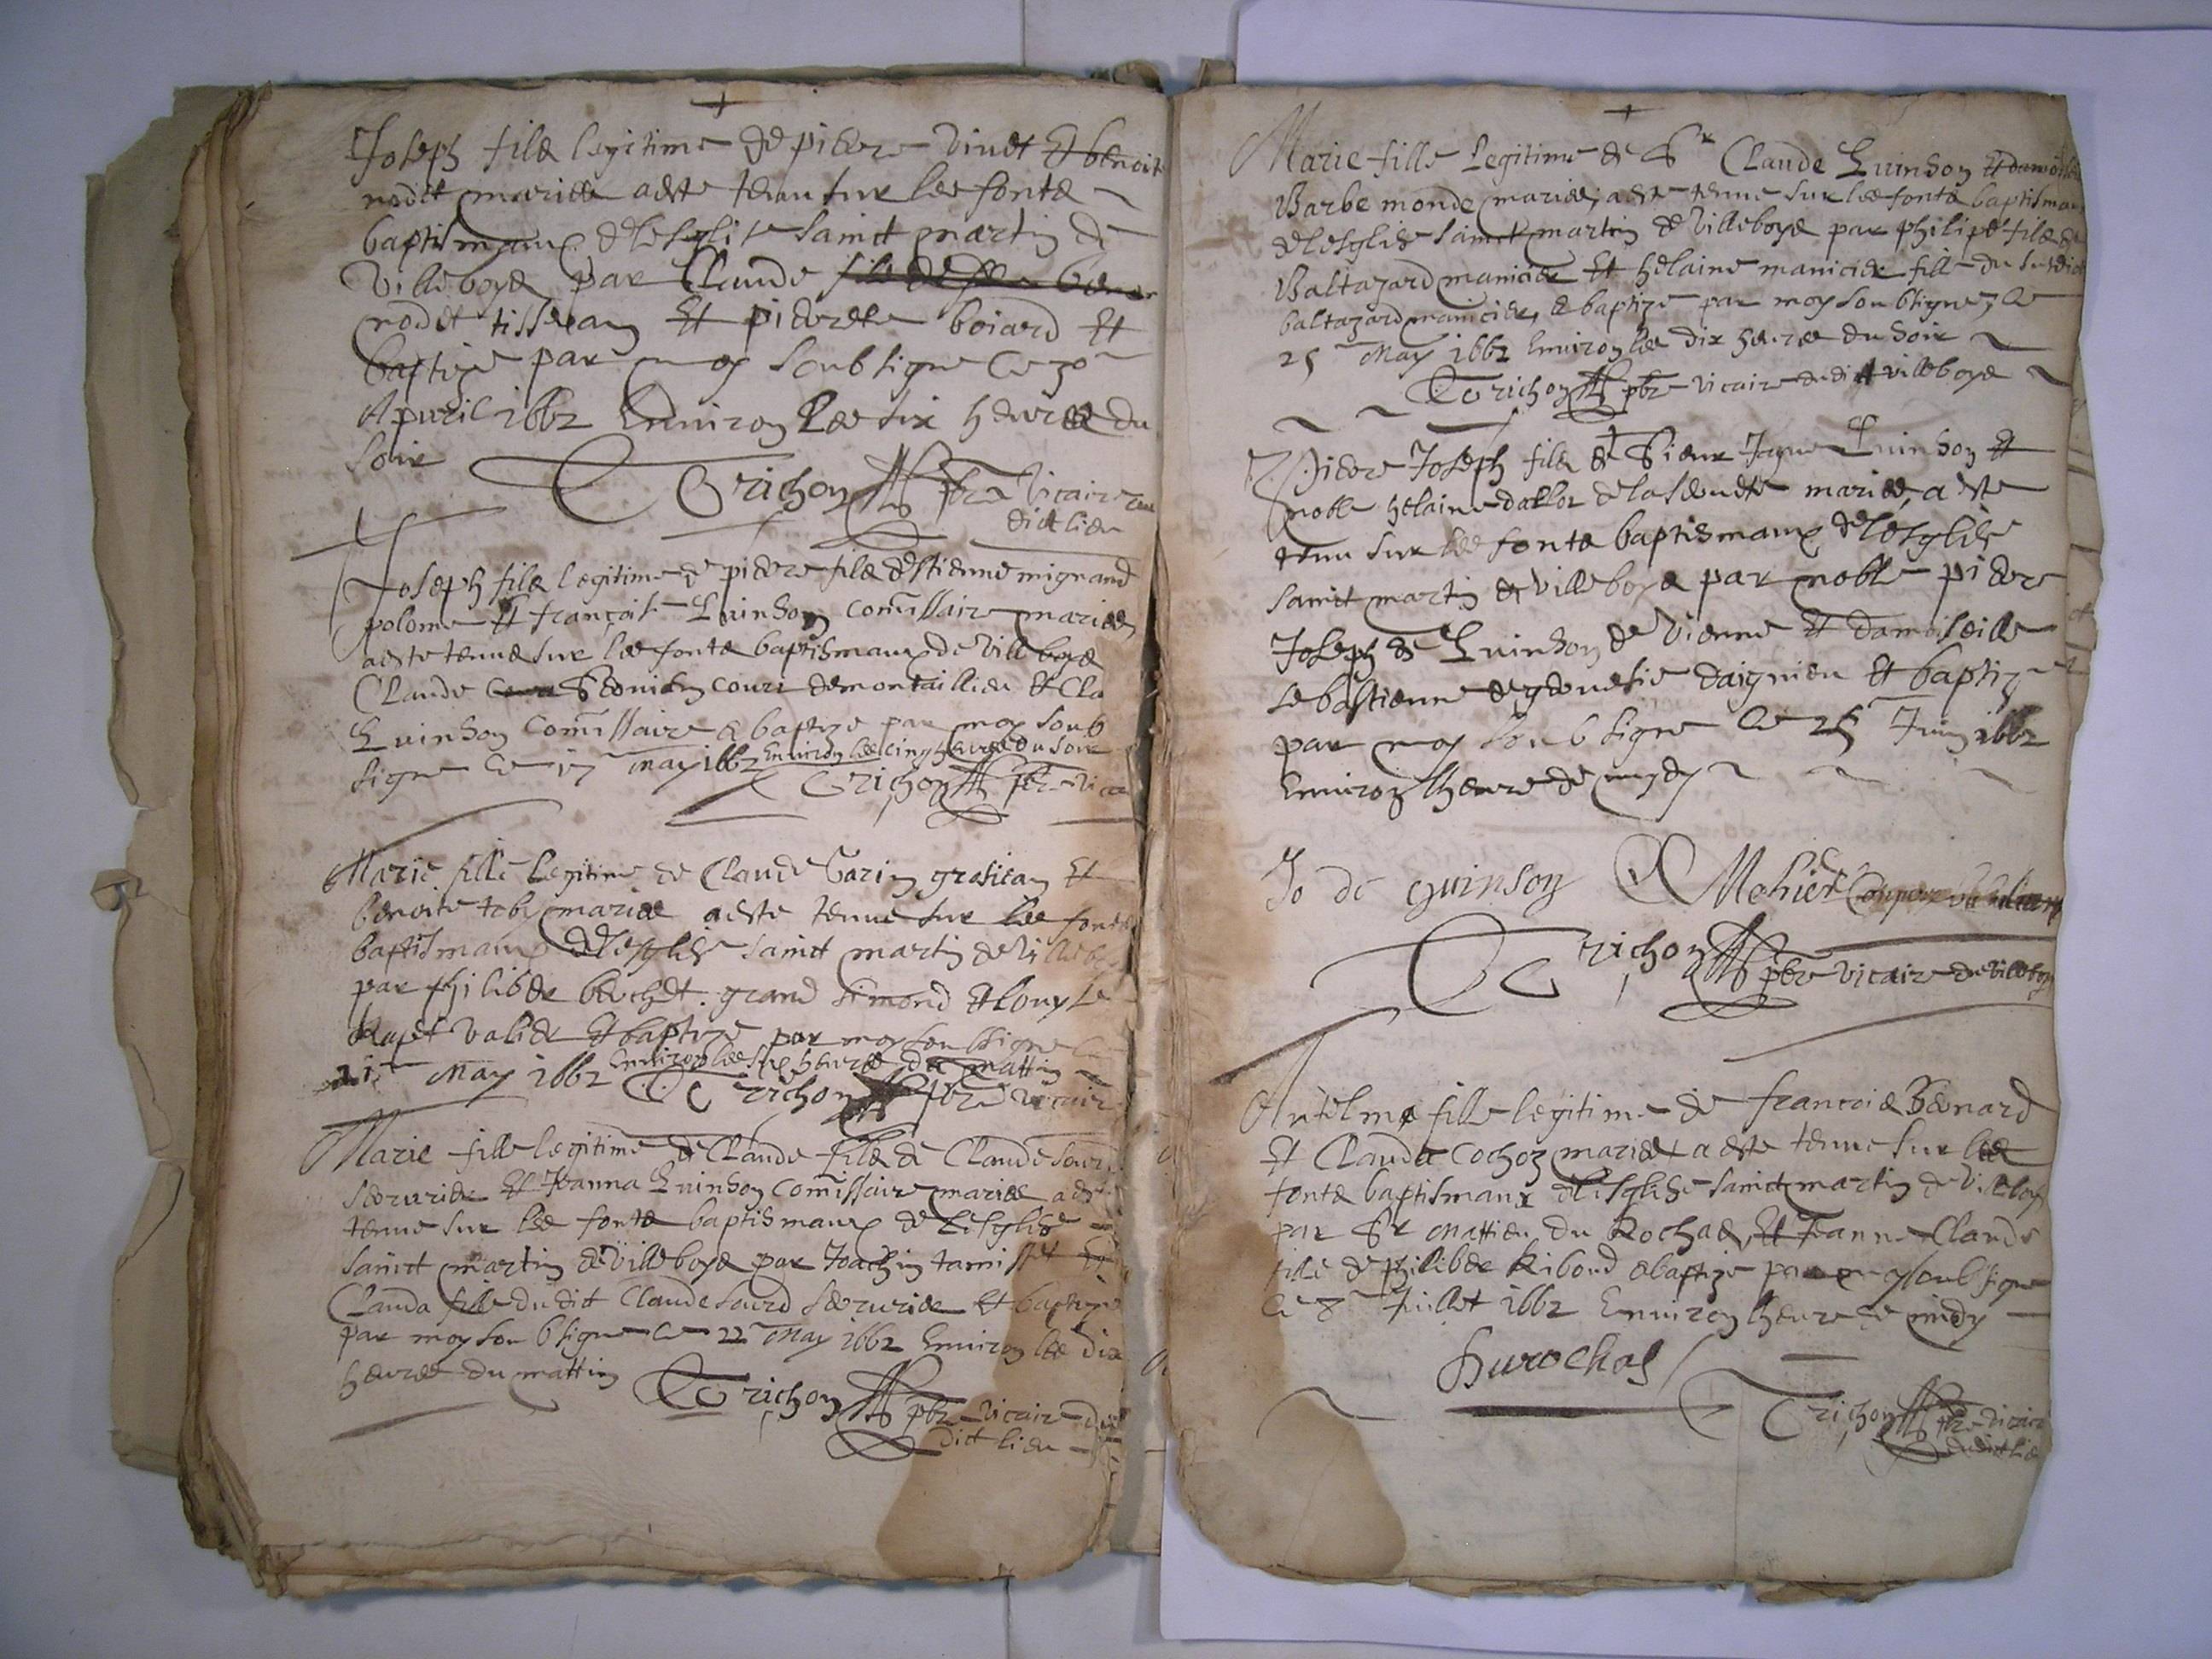 Joseph filz legitime de pierre vinet Et benoite
nodet mariez a este tenu sur les fontz
baptismaux de lesglise sainct martin de
villeboys par Claude
nodet tisseran Et pierrete boiard Et
baptize par moy soubsigne ce 30
Apuril 1662 Environ Les six heures du
soir
Trichon pbre Vicaire
dict lieu
Joseph filz legitime de pierre filz destienne mignand
polome Et françoise Quinson Commissaire mariez
a este tenus sur les fontz baptismaux de Villeboys
Claude de montaillieu Et Cla
Quinson Commissaire & baptize par moy soub
signe ce 17 may 1662 Environ les cinq heures du soir
Trichon pbre Vica
Marie fille Legitime de Claude Varin Et
benoite mariez a este tenue sur les fontz
baptismaux de lesglise sainct martin de Villebo
par philiber grand simond Et Louyse
Et baptize par moy soubsigne ce
21 May 1662 Environ les six heures du mattin
Trichon pbre Vicaire
Marie fille legitime de Claude filz de Claude sourd
serrurier Et Jeanna Quinson Commissaire mariez a este
tenue sur les fontz baptismaux de Lesglise
sainct martin de villeboys par Joachin tamisset
Clauda fille du dict Claude sourd serrurier Et baptize
par moy soubsigne ce 22 May 1662 Environ les dix
heures du mattin
Trichon pbre Vicaire du
dict lieu
Marie fille Legitime de Sr Claude Quinson Et damoiselle
Barbe monde mariez, a este tenue sur les fontz baptismau
de lesglise sainct martin de Villeboys par philipe filz de
Baltazard manicier Et helaine manicier fille du susdict
baltazard manicier, & baptize par moy soubsigne, ce
25 May 1662 Environ les dix heures du soir
Trichon pbre Vicaire du dict villeboys
Pierre Joseph filz de Sieur Jayme Quinson Et
noble helaine mariez, a este
tenu sur les fontz baptismaux de lesglise
sainct martin de Villeboys par noble pierre
Joseph de Quinson de Vienne Et damoiselle
sebastienne daignieu Et baptize
par moy soubsigne ce 25 Juin 1662
Environ lheure de mydy
Jo de quinson Mehier
Trichon pbre Vicaire de Villeboys
Antelme fille legitime de francois Bernard
Et Clauda Cochoz mariez a este tenue sur les
fontz baptismaux de lesglise sainct martin de Villeboys
par Sr Mattieu du Rochas, Et Jeanne Claude
fille de philiber Ribond & baptize par moy soubsigne
ce 8 Juillet 1662 Environ lheure de midy
Durochas
Trichon pbre Vicaire
du dict lieu